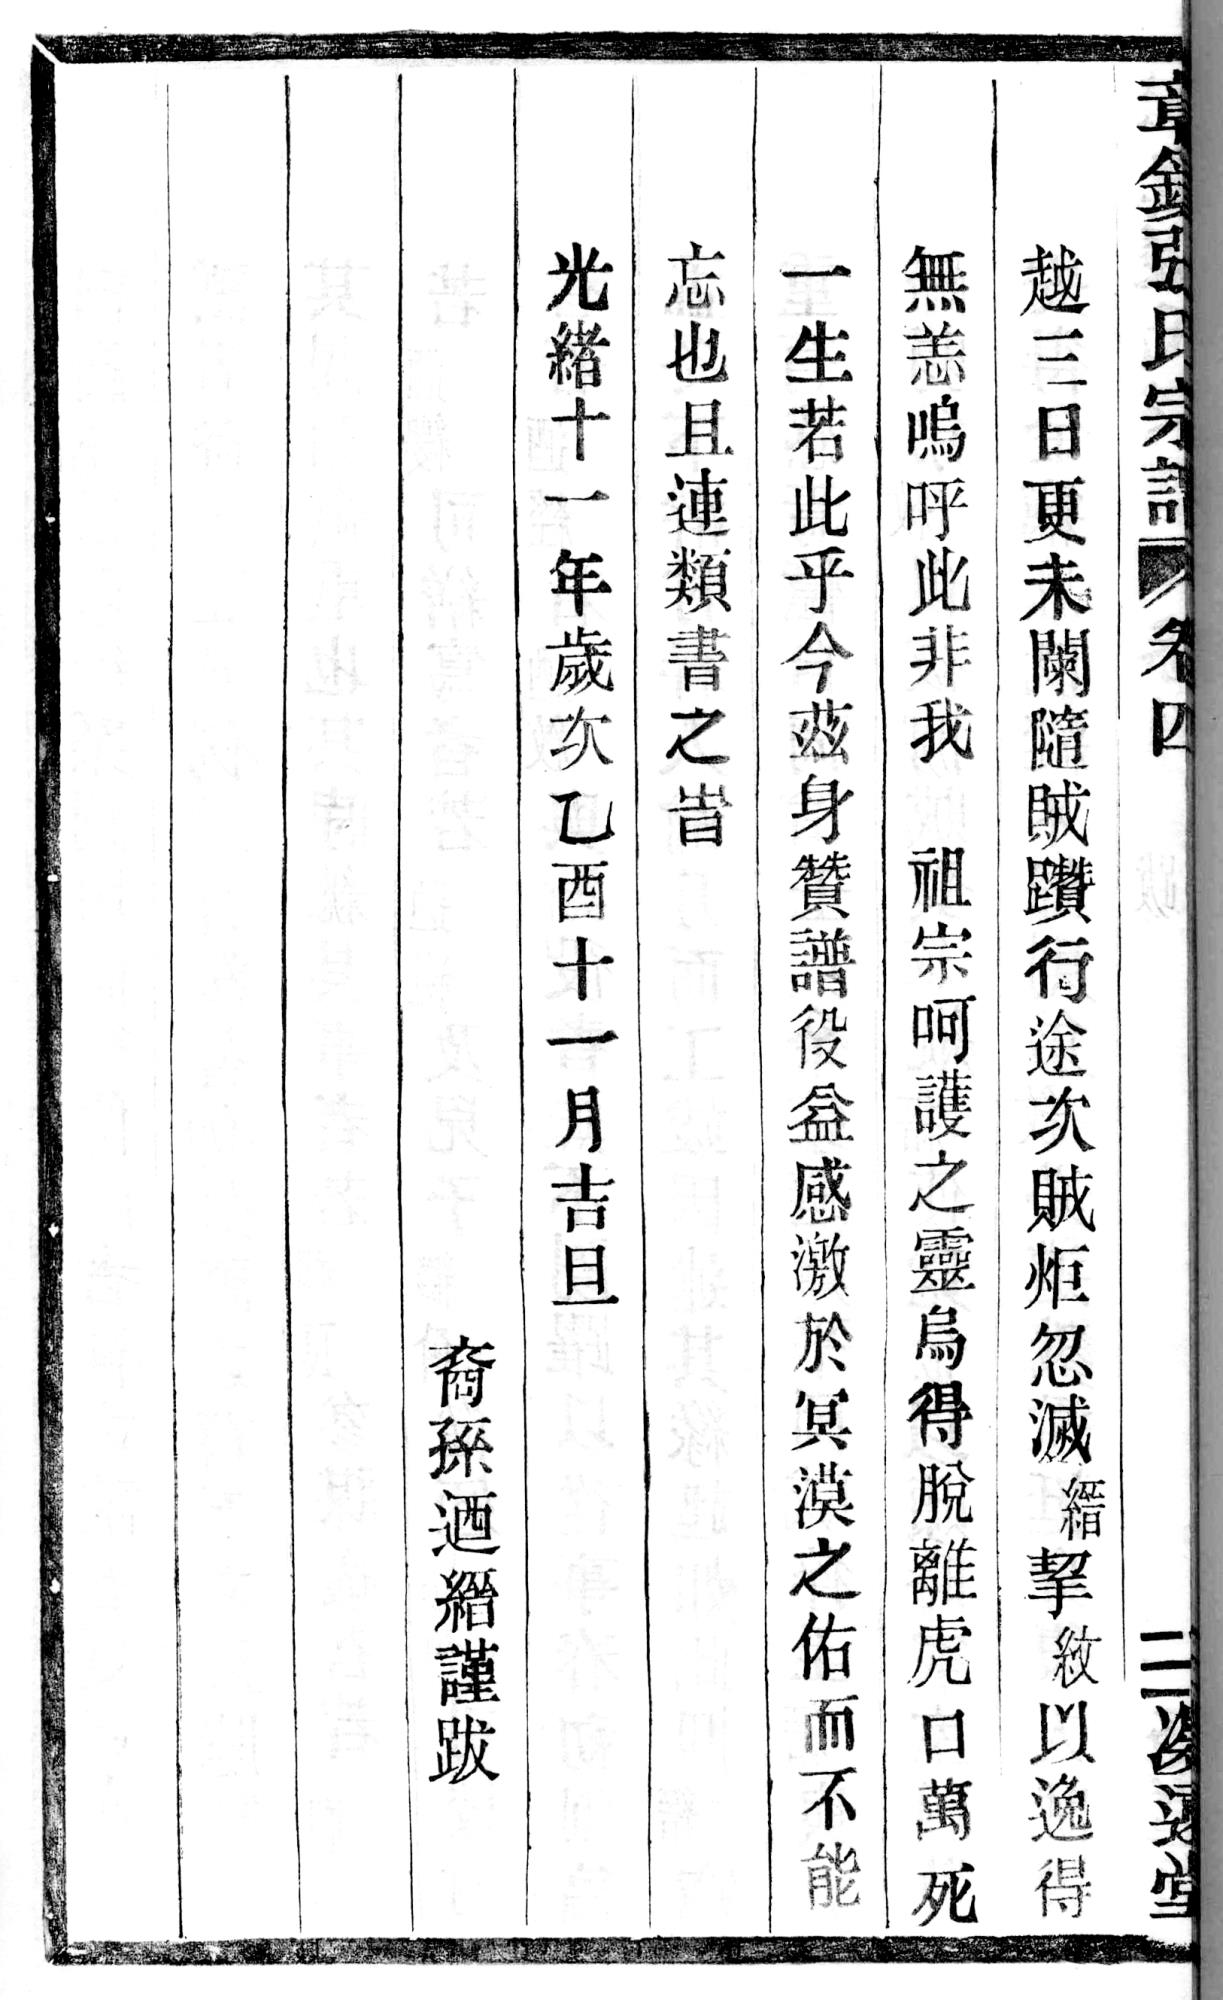 章鎮張氏宗譜 卷四 二 逯堂
越三日更未闌隨賊躦行途次賊炬忽滅縉挈紋以逸得
無恙嗚呼此非我 祖宗呵護之靈烏得脫離虎口萬死
一生若此乎今茲身贊譜役益感激於冥漠之佑而不能
忘也且連類書之旹
光緒十一年歲次乙酉十一月吉旦
裔孫迺縉謹跋